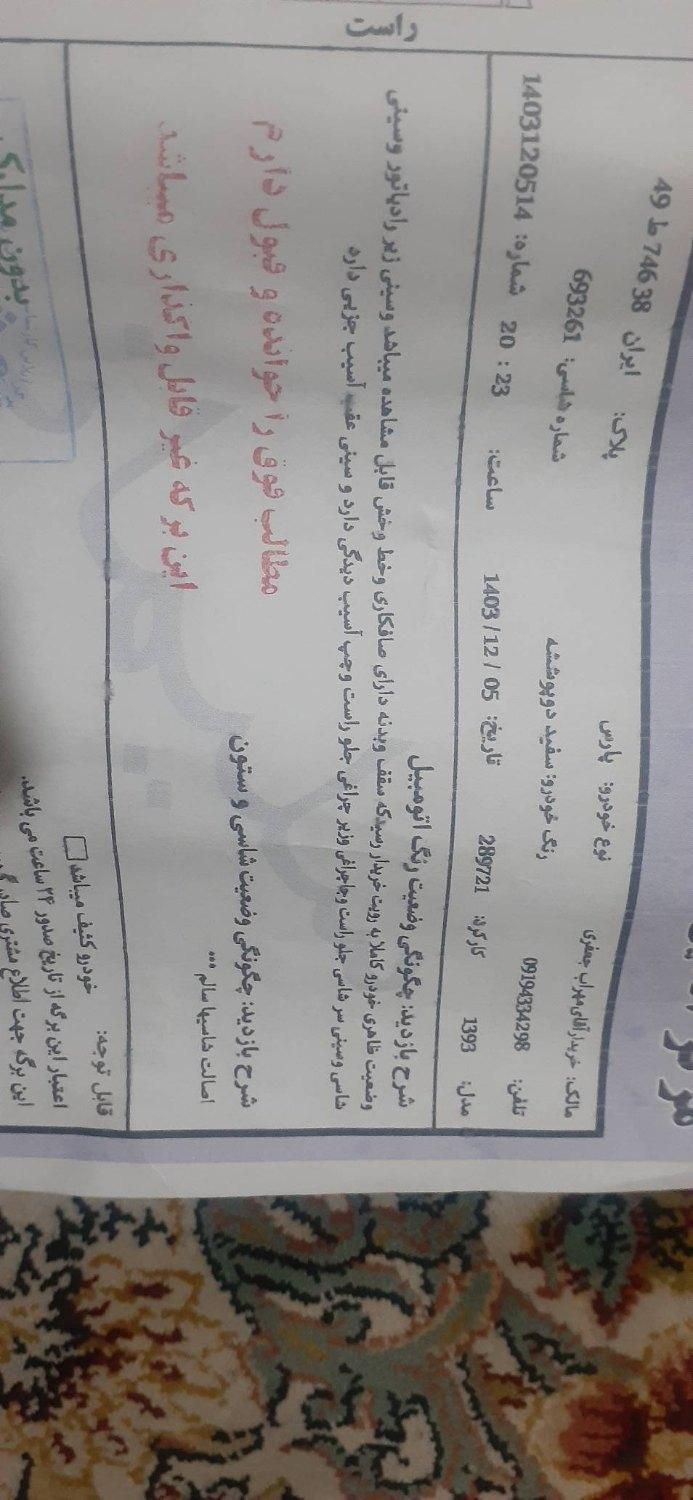 مالک: خریدار آقای مهراب جعفری
نوع خودرو: پارس
پلاک: ایران 38 746 ط 49
تلفن: 09194334298
رنگ خودرو: سفید دوپوششه
شماره شاسی: 693261
مدل: 1393
کارکرد: 289721
تاریخ: 1403 / 12 / 05
ساعت: 23 : 20
شماره: 1403120514
شرح بازدید: چگونگی وضعیت رنگ اتومبیل
وضعیت ظاهری خودرو کاملا به رویت خریدار رسیدکه سقف وبدنه دارای صافکاری وخط وخش قابل مشاهده میباشد وسینی زیر رادیاتور وسینی
شاسی وسینی سر شاسی جلو راست وجاچراغی وزیر چراغی جلو راست وچپ آسیب دیدگی دارد و سینی عقب آسیب جزیی داره
شرح بازدید: چگونگی وضعیت شاسی و ستون
اصالت شاسیها سالم ***
مطالب فوق را خوانده و قبول دارم
این برگه غیر قابل واگذاری میباشد
قابل توجه:
خودرو کثیف میباشد
اعتبار این برگه از تاریخ صدور ۲۴ ساعت می باشد.
این برگه جهت اطلاع مشتری صادر
بدون مدارک
راست